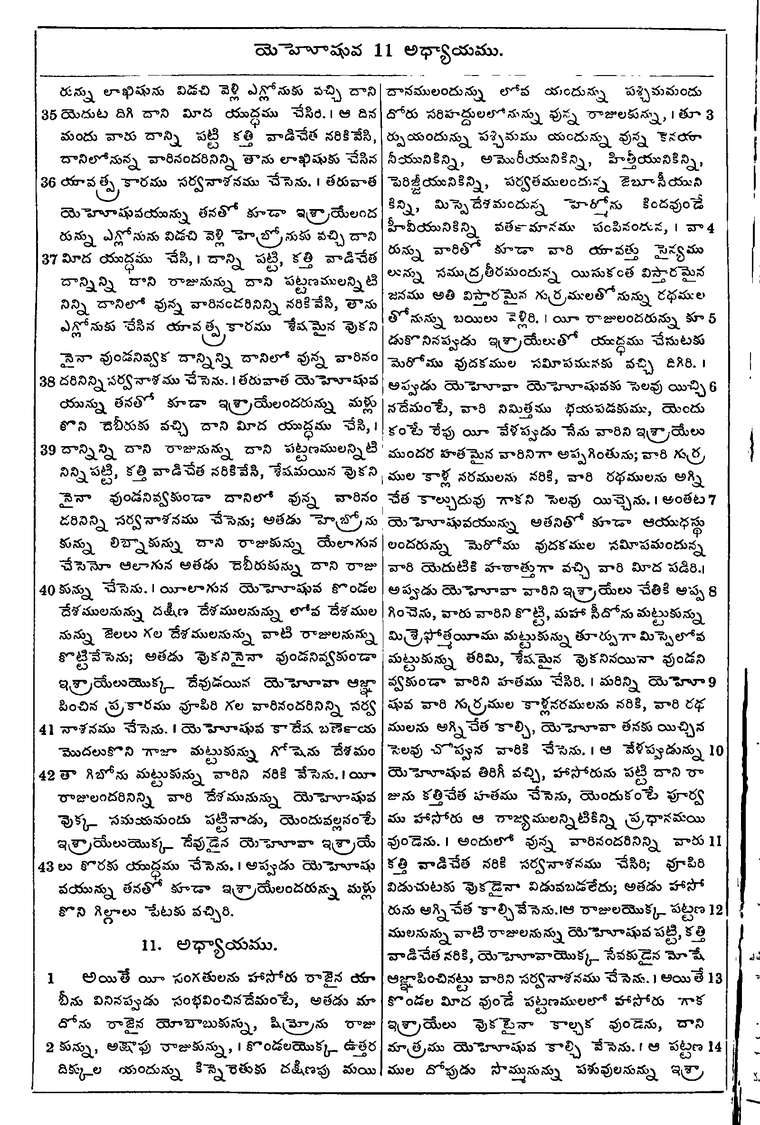 యెహోషువ 11 అధ్యాయము.
రున్ను లాఖిషును విడచి వెళ్లి ఎగ్లోనుకు వచ్చి దాని
35 యెదుట దిగి దాని మీద యుద్ధము చేసిరి. । ఆ దిన
మందు వారు దాన్ని పట్టి కత్తి వాడిచేత నరికివేసి,
దానిలోనున్న వారినందరినిన్ని తాను లాఖిషుకు చేసిన
36 యావత్ప్రకారము సర్వనాశనము చేసెను. । తరువాత
యెహోషువయున్ను తనతో కూడా ఇశ్రాయేలంద
రున్ను ఎగ్లోనును విడచి వెళ్లి హెబ్రోనుకు వచ్చి దాని
37 మీద యుద్ధము చేసి, । దాన్ని పట్టి, కత్తి వాడిచేత
దాన్నిన్ని దాని రాజునున్ను దాని పట్టణములన్నిటి
నిన్ని దానిలో వున్న వారినందరినిన్ని నరికివేసి, తాను
ఎగ్లోనుకు చేసిన యావత్ప్రకారము శేషమైన వొకని
నైనా వుండనివ్వక దాన్నిన్ని దానిలో వున్న వారినం
38 దరినిన్ని సర్వనాశము చేసెను. । తరువాత యెహోషువ
యున్ను తనతో కూడా ఇశ్రాయేలందరున్ను మళ్లు
కొని దెబీరుకు వచ్చి దాని మీద యుద్ధము చేసి, ।
39 దాన్నిన్ని దాని రాజునున్ను దాని పట్టణములన్నిటి
నిన్ని పట్టి, కత్తి వాడిచేత నరికివేసి, శేషమయిన వొకని
నైనా వుండనివ్వకుండా దానిలో వున్న వారినం
దరినిన్ని సర్వనాశము చేసెను; అతడు హెబ్రోను
కున్ను లిబ్నాకున్ను దాని రాజుకున్ను యేలాగున
చేసెనో ఆలాగున అతడు దెబీరుకున్ను దాని రాజు
40 కున్ను చేసెను. । యీలాగున యెహోషువ కొండల
దేశములనున్ను దక్షిణ దేశములనున్ను లోవ దేశముల
నున్ను జెలలు గల దేశములనున్ను వాటి రాజులనున్ను
కొట్టివేసెను; అతడు వొకనినైనా వుండనివ్వకుండా
ఇశ్రాయేలుయొక్క దేవుడయిన యెహోవా ఆజ్ఞా
పించిన ప్రకారము వూపిరి గల వారినందరినిన్ని సర్వ
41 నాశనము చేసెను. । యెహోషువ కాదేష బర్ణెయ
మొదలుకొని గాజా మట్టుకున్ను గోషెను దేశమం
42 తా గిబోను మట్టుకున్ను వారిని నరికి వేసెను. । యీ
రాజులందరినిన్ని వారి దేశమునున్ను యెహోషువ
వొక్క సమయమందు పట్టినాడు, యెందువల్లనంటే
ఇశ్రాయేలుయొక్క దేవుడైన యెహోవా ఇశ్రాయే
43 లు కొరకు యుద్ధము చేసెను. । అప్పుడు యెహోషు
వయున్ను తనతో కూడా ఇశ్రాయేలందరున్ను మళ్లు
కొని గిల్గాలు పేటకు వచ్చిరి.
11. అధ్యాయము.
1 అయితే యీ సంగతులను హాసోరు రాజైన యా
బీను వినినప్పుడు సంభవించినదేమంటే, అతడు మా
దోను రాజైన యోబాబుకున్ను, షిమ్రోను రాజు
2 కున్ను, అక్షాఫు రాజుకున్ను, । కొండలయొక్క ఉత్తర
దిక్కుల యందున్ను కిన్నెరెతుకు దక్షిణపు మయి
దానములందున్ను లోవ యందున్ను పశ్చిమమందు
దోరు సరిహద్దులలోనున్ను వున్న రాజులకున్ను, । తూ 3
ర్పుయందున్ను పశ్చిమము యందున్ను వున్న కనయా
నీయునికిన్ని, అమోరీయునికిన్ని, హిత్తీయునికిన్ని,
పెరిజ్జీయునికిన్ని, పర్వతములందున్న జెబూసీయుని
కిన్ని, మిస్పెదేశమందున్న హెర్మోను కిందవుండే
హీవీయునికిన్ని వర్తమానము పంపినందున, । వా 4
రున్ను వారితో కూడా వారి యావత్తు సైన్యము
లున్ను సముద్రతీరమందున్న యిసుకంత విస్తారమైన
జనము అతి విస్తారమైన గుర్రములతోనున్ను రథముల
తోనున్ను బయిలు వెళ్లిరి. । యీ రాజులందరున్ను కూ 5
డుకొనినప్పుడు ఇశ్రాయేలుతో యుద్ధము చేసుటకు
మెరోము వుదకముల సమీపమునకు వచ్చి దిగిరి. ।
అప్పుడు యెహోవా యెహోషువకు సెలవు యిచ్చి 6
నదేమంటే, వారి నిమిత్తము భయపడకుము, యెందు
కంటే రేపు యీ వేళప్పుడు నేను వారిని ఇశ్రాయేలు
ముందర హతమైన వారినిగా అప్పగింతును; వారి గుర్ర
ముల కాళ్ల నరములను నరికి, వారి రథములను అగ్ని
చేత కాల్చుదువు గాకని సెలవు యిచ్చెను. । అంతట 7
యెహోషువయున్ను అతనితో కూడా ఆయుధస్థు
లందరున్ను మెరోము వుదకముల సమీపమందున్న
వారి యెదుటికి హఠాత్తుగా వచ్చి వారి మీద పడిరి. ।
అప్పుడు యెహోవా వారిని ఇశ్రాయేలు చేతికి అప్ప 8
గించెను, వారు వారిని కొట్టి, మహా సీదోను మట్టుకున్ను
మిశ్రెఫోత్మయీము మట్టుకున్ను తూర్పుగా మిస్పెలోవ
మట్టుకున్ను తరిమి, శేషమైన వొకనినయినా వుండని
వ్వకుండా వారిని హతము చేసిరి. । మరిన్ని యెహో 9
షువ వారి గుర్రముల కాళ్లనరములను నరికి, వారి రథ
ములను అగ్నిచేత కాల్చి, యెహోవా తనకు యిచ్చిన
సెలవు చొప్పున వారికి చేసెను. । ఆ వేళప్పుడున్ను 10
యెహోషువ తిరిగి వచ్చి, హాసోరును పట్టి దాని రా
జును కత్తిచేత హతము చేసెను, యెందుకంటే పూర్వ
ము హాసోరు ఆ రాజ్యములన్నిటికిన్ని ప్రధానమయి
వుండెను. । అందులో వున్న వారినందరినిన్ని వారు 11
కత్తి వాడిచేత నరికి సర్వనాశనము చేసిరి; వూపిరి
విడుచుటకు వొకడైనా విడువబడలేదు; అతడు హాసో
రును అగ్నిచేత కాల్చివేసెను. । ఆ రాజులయొక్క పట్టణ 12
ములనున్ను వాటి రాజులనున్ను యెహోషువ పట్టి, కత్తి
వాడిచేత నరికి, యెహోవాయొక్క సేవకుడైన మోషే
ఆజ్ఞాపించినట్టు వారిని సర్వనాశనము చేసెను. । అయితే 13
కొండల మీద వుండే పట్టణములలో హాసోరు గాక
ఇశ్రాయేలు వొకటైనా కాల్చక వుండెను, దాని
మాత్రము యెహోషువ కాల్చి వేసెను. । ఆ పట్టణ 14
ముల దోపుడు సొమ్మునున్ను పశువులనున్ను ఇశ్రా